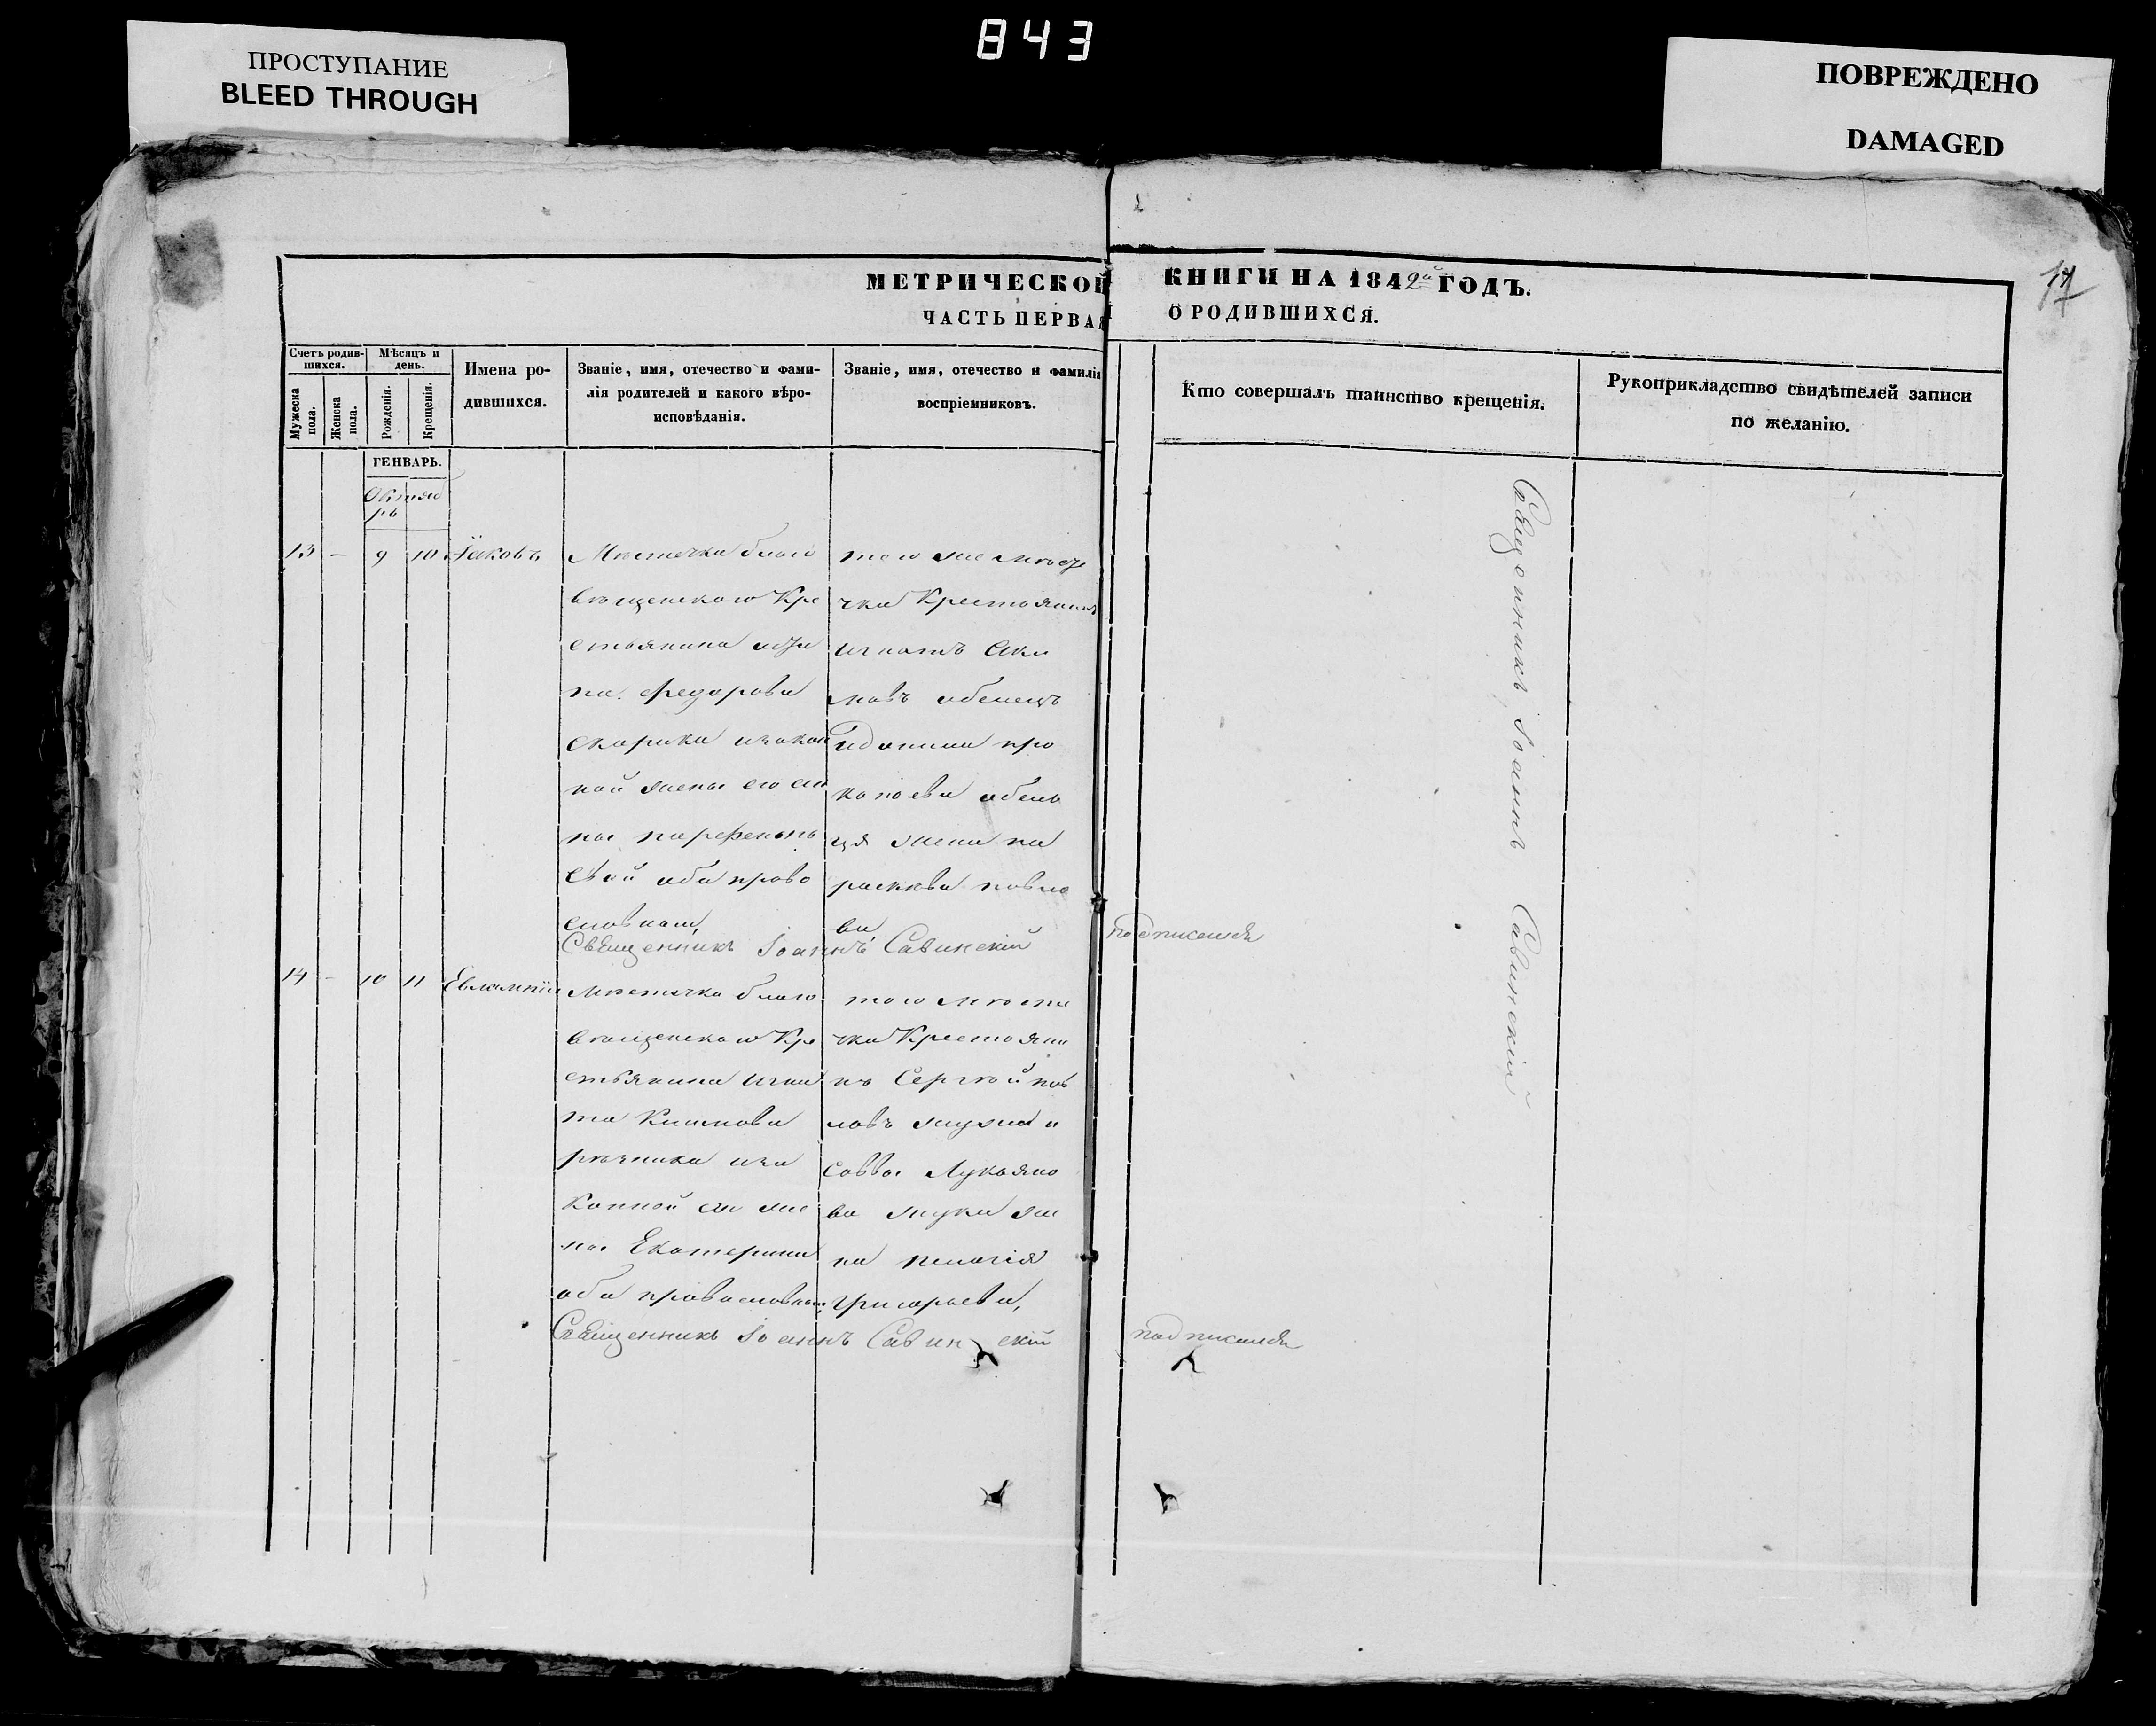 843
ПРОСТУПАНИЕ
BLEED THROUGH
ПОВРЕЖДЕНО
DAMAGED
17
МЕТРИЧЕСКОЙ КНИГИ НА 1842й ГОДЪ.
ЧАСТЬ ПЕРВАЯ О РОДИВШИХСЯ.
Счетъ родив-
шихся.
Мужеска пола.
Женска пола.
Мѣсяцъ и
день.
Рожденія.
Крещенія.
Имена ро-
дившихся.
Званіе, имя, отечество и фами-
лія родителей и какого вѣро-
исповѣданія.
Званіе, имя, отечество и фамилія
воспріемниковъ.
Кто совершалъ таинство крещенія.
Рукоприкладство свидѣтелей записи
по желанію.
ГЕНВАРЬ.
Октяб
рь
13 – 9 10 Іяковъ
Мѣстечка благо
вѣщенскаго Кре
стьянина
Федорова
скорика изакон
ной жены его
парфеньѣ
свой оба право
славнаи,
того же мѣсте
чка Крестьянинъ
игнатъ
мовъ
про
копоева
ця жена па
расквва павло
ва,
Священникъ Іоаннъ Савинскій подписался
14 – 10 11 Евлампій
Мѣстечка благо
вѣщенскаго Кре
стьянина игна
та Климова
рѣзника иза
конной же
ны Екатерины
оба православнаи,
того мѣсте
чка Крестьяни
нъ Сергѣй пав
ловъ жужа и
саввы Лукьяно
ва жука же
на пелагія
григорьева,
Священникъ Іоаннъ Савинскій подписался
Священникъ Іоаннъ Савинскій